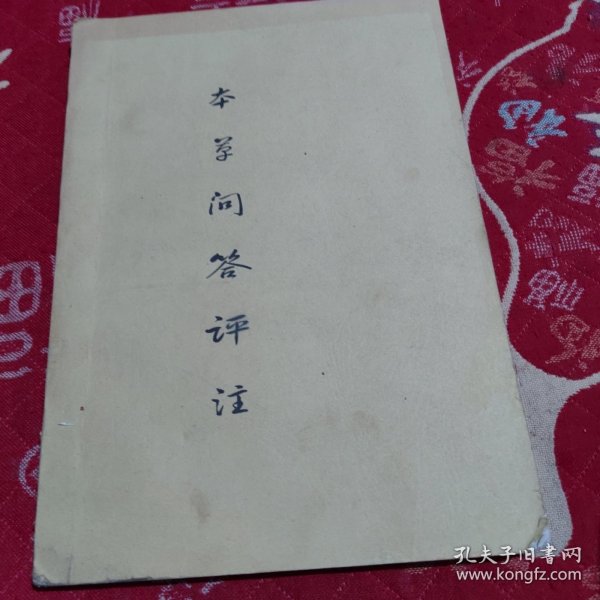 本草问答评注
福
福
孔夫子旧书网
www.kongfz.com